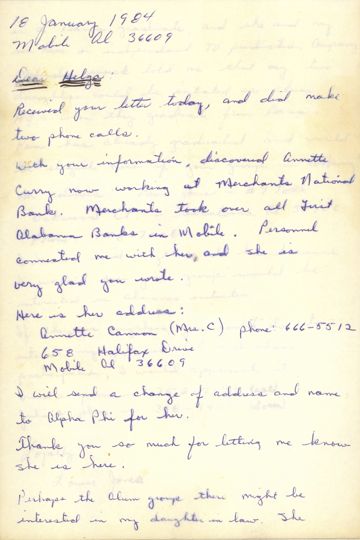 18 January 1984
Mobile Al 36609
Dear Helga
Received your letter today, and did make
two phone calls.
With your information, discovered Annette
Curry now working at Merchants National
Bank. Merchants took over all First
Alabama Banks in Mobile. Personnel
connected me with her, and she is
very glad you wrote.
Here is her address:
Annette Cannon (Mrs. C) phone: 666-5512
658 Halifax Drive
Mobile Al 36609
I will send a change of address and name
to Alpha Phi for her.
Thank you so much for letting me know
she is here.
Perhaps the Alum group there might be
interested in my daughter in law. She